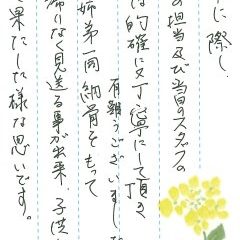 に際し、
の担当及び当日のスタッフの
は的確に又丁寧にして頂き
有難うございました
姉弟一同納骨をもって
滞りなく見送る事が出来、子供
果たした様な思いです。